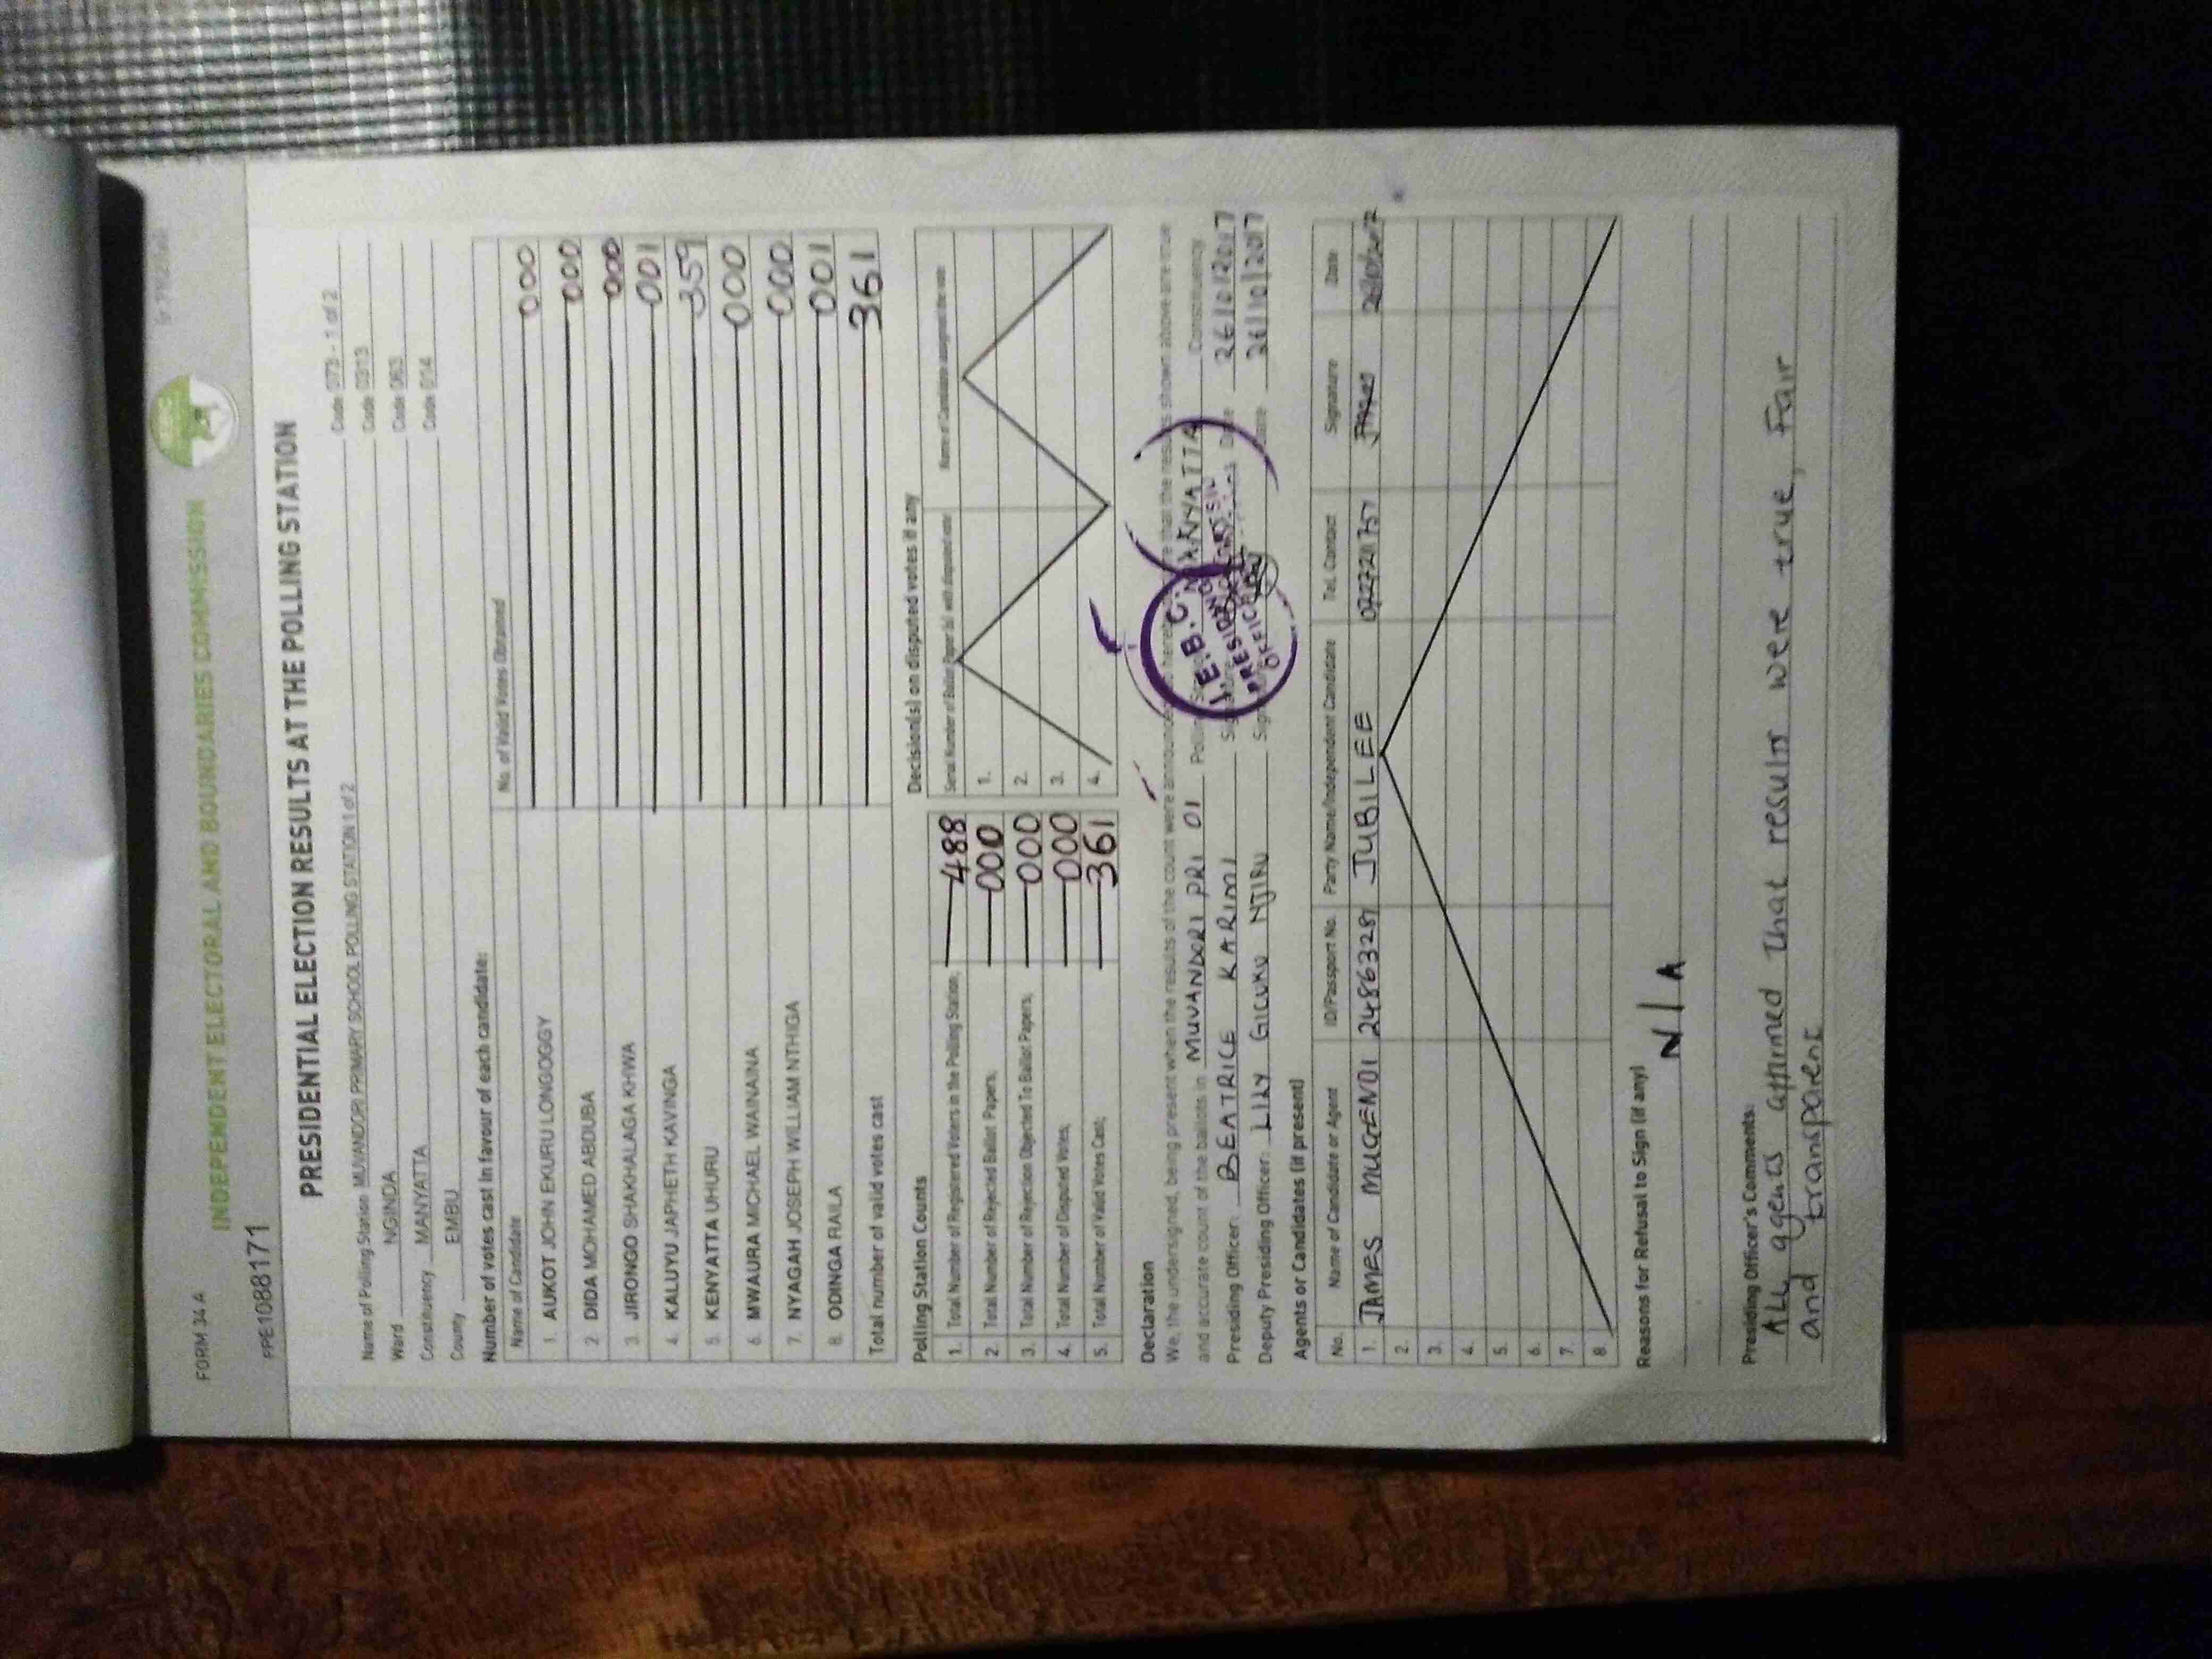 FORM 34 A
INDEPENDENT ELECTORAL AND BOUNDARIES COMMISSION
PPE1088171
PRESIDENTIAL ELECTION RESULTS AT THE POLLING STATION
Name of Polling Station MUVANDORI PRIMARY SCHOOL POLLING STATION 1 of 2 Code 073 - 1 of 2
Ward NGINDA Code 0313
Constituency MANYATTA Code 063
County EMBU Code 014
Number of votes cast in favour of each candidate:
Name of Candidate No. of Valid Votes Obtained
1. AUKOT JOHN EKURU LONGOGGY 000
2 DIDA MOHAMED ABDUBA 000
3. JIRONGO SHAKHALAGA KHWA 000
4. KALUYU JAPHETH KAVINGA 001
5. KENYATTA UHURU 359
6. MWAURA MICHAEL WAINAINA 000
7. NYAGAH JOSEPH WILLIAM NTHIGA 000
8. ODINGA RAILA 001
Total number of valid votes cast 361
Polling Station Counts
1. Total Number of Registered Voters in the Polling Station; 488
2. Total Number of Rejected Ballot Papers; 000
3. Total Number of Rejection Objected To Ballot Papers; 000
4. Total Number of Disputed Votes; 000
5. Total Number of Valid Votes Cast; 361
Decision(s) on disputed votes if any
Serial Number of Ballot Paper (s) with disputed vote Name of Candidate assigned the vote
1.
2.
3.
4.
Declaration
We, the undersigned, being present when the results of the count were announced, hereby declare that the results shown above are true
and accurate count of the ballots in MUVANDORI PRI 01 Polling Station MANYATTA Constituency
Presiding Officer: BEATRICE KARIMI Signature Date 26/10/2017
Deputy Presiding Officer: LILY GICUKU NJIRU Signature Date 26/10/2017
I.E.B.C.
PRESIDING
OFFICER
Agents or Candidates (if present)
No. Name of Candidate or Agent ID/Passport No. Party Name/Independent Candidate Tel. Contact Signature Date
1. JAMES MUGENDI 24863287 JUBILEE
2.
3.
4.
5.
6.
7.
8.
Reasons for Refusal to Sign (if any)
N/A
Presiding Officer's Comments:
ALL agents affirmed That results were true, Fair
and transparent